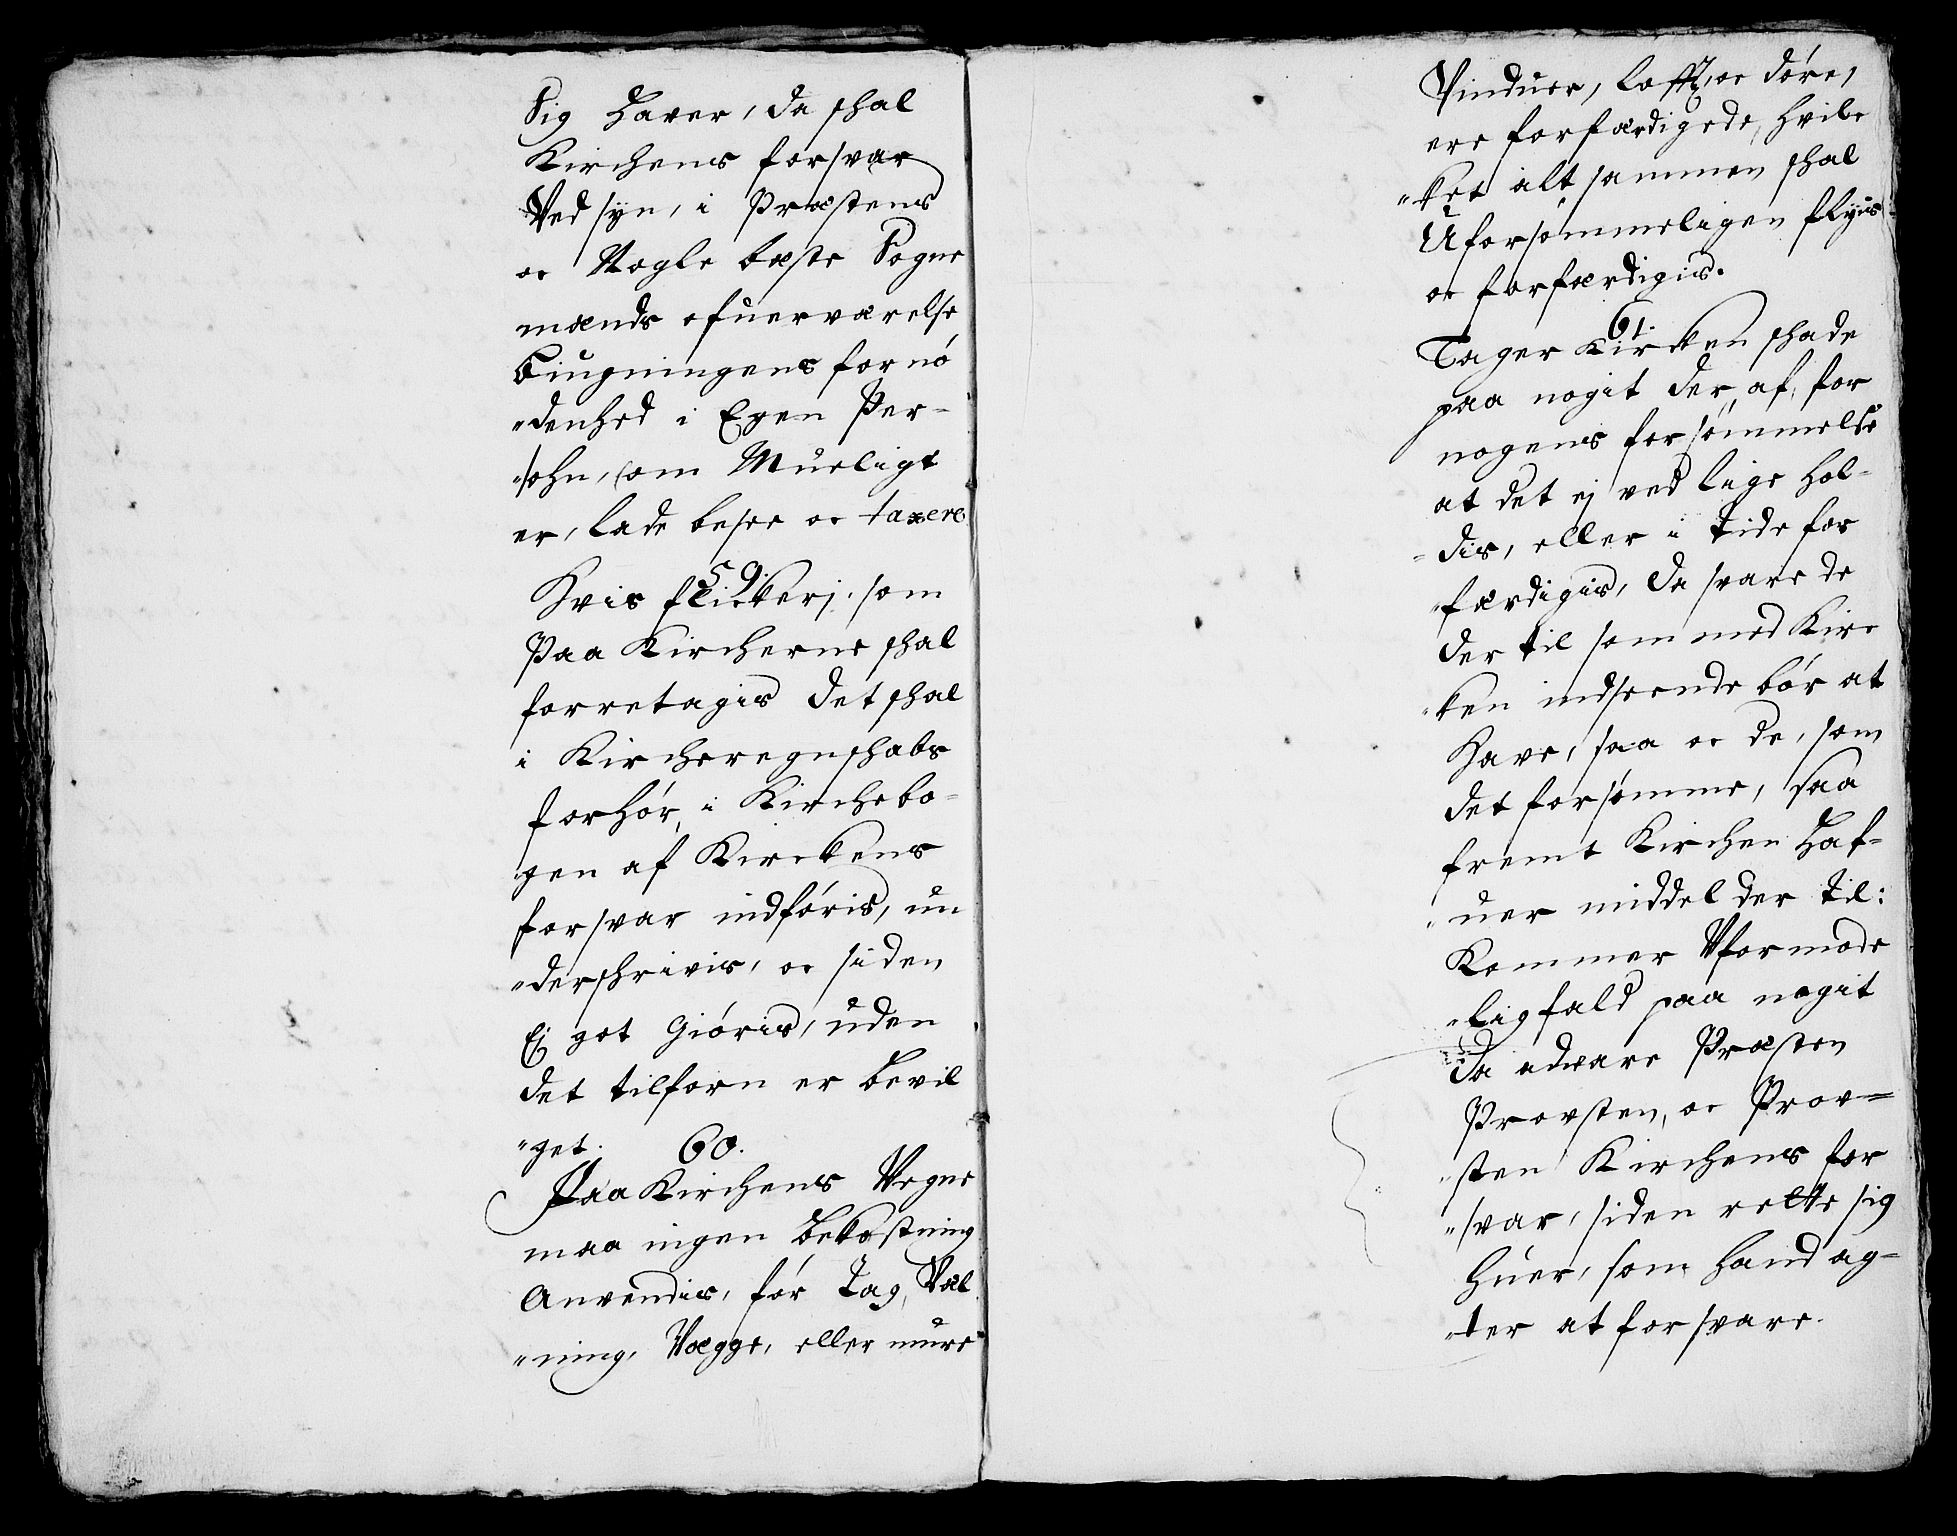 Sig haver, da shal
Kirchens forsvar
Ved syn, i Præstens
oc Nogle beste Sogne
mænds ofuerværelse
Biugningens fornó
"denhed i Egen Per-
"sohn, som Mueligt
er, lade besee oc taxere
59.
Hvis flickerj som
Paa Kircherne shal
forretagis det shal
i Kircheregnshabs
forhór, i Kirchebo-
gen af Kirckens
forsvar indfóris, un
"dershrivis, oc siden
Ej got Gióris, uden
det tilforn er bevil
"get. 60.
Paa Kirchens Vegne
maa ingen bekostning
Anvendis, fór Tag, Væl
"ning, Vægge, eller mure
Vinduer, Lofft, oc dóre,
ere forfærdigede, hvilc
"ket alt sammen shal
Uforsómmeligen flyis
oc forfærdigis.
61.
Tager Kircken shade
paa nogit der af, for
nogens forsómmelse
at det ej ved lige hol-
"dis, eller i tide for
"færdigis, da svare de
der til som med Kirc
"ken indseende bór at
Have, saa oc de, som
det forsómme, saa
fremt Kirchen haf-
"uer middel der til:
Kommer Vformode
"lig fald paa nogit
da advare Præsten
Provsten, oc Prov-
"sten Kirchens for
"svar, siden rette sig
huer, som hand ag-
"ter at forsvare.